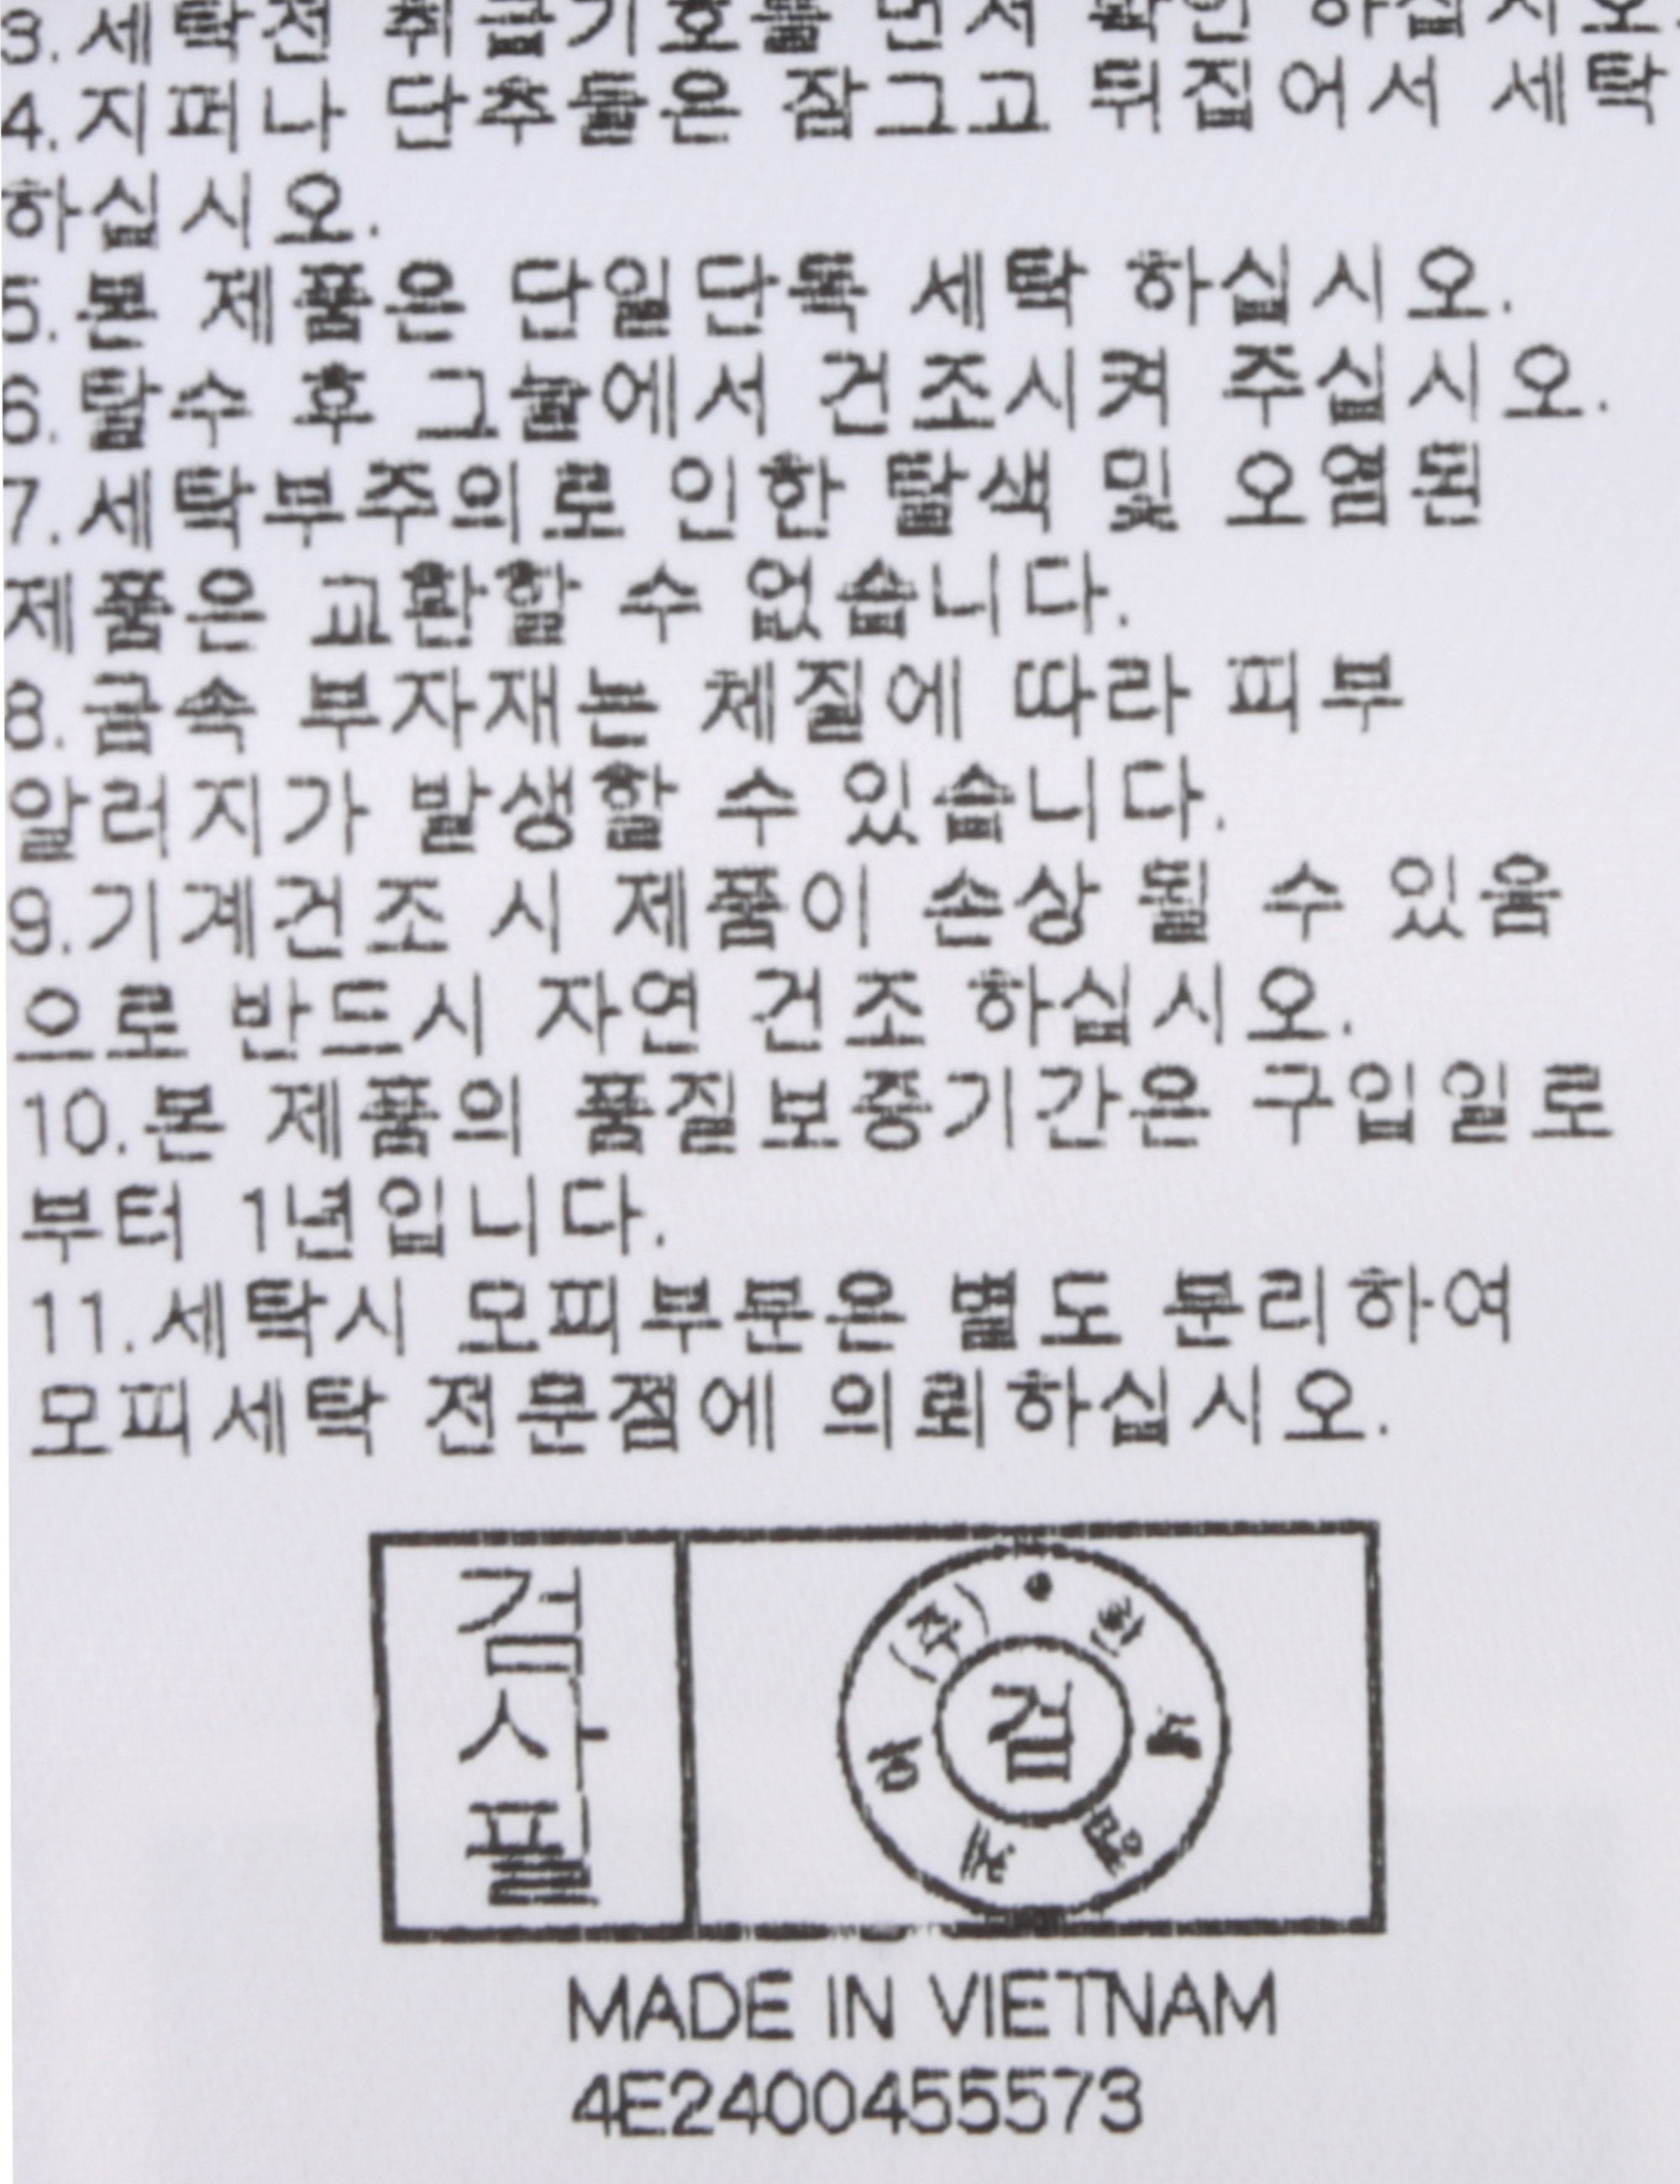 3.세탁전 취급기호를 먼저 확인 하십시오
4.지퍼나 단추들은 잠그고 뒤집어서 세탁
하십시오.
5.본 제품은 단일단독 세탁 하십시오.
6.탈수 후 그늘에서 건조시켜 주십시오.
7.세탁부주의로 인한 탈색 및 오염된
제품은 교환할 수 없습니다.
8.금속 부자재는 체질에 따라 피부
알러지가 발생할 수 있습니다.
9.기계건조 시 제품이 손상 될 수 있움
으로 반드시 자연 건조 하십시오.
10.본 제품의 품질보증기간은 구입일로
부터 1년입니다.
11.세탁시 모피부분은 별도 분리하여
모피세탁 전문점에 의뢰하십시오.
검사필
(주)한세엠케이
검
MADE IN VIETNAM
4E2400455573